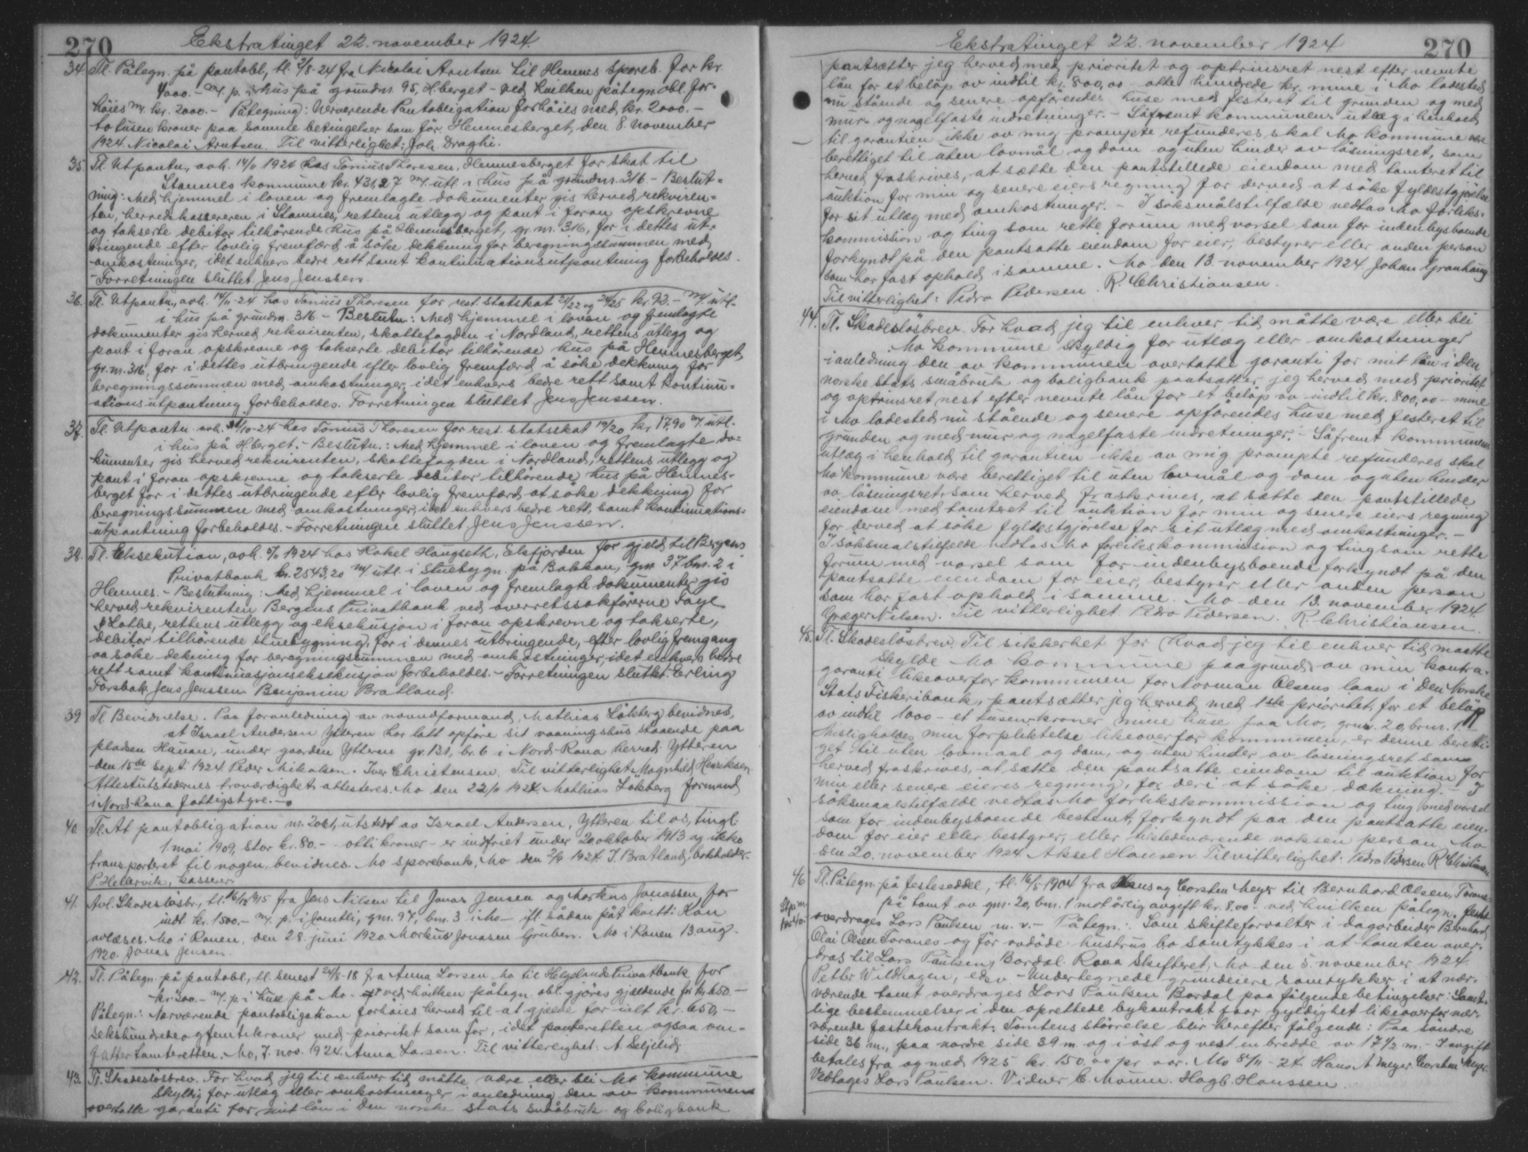 270
Ekstratinget 22. november 1924.
34. Tl. Påtegn. på pantobl., tl. 2/8-24 fra Nicolai Arntsen til Hemnes spareb. for kr.
4000.- m/ p. i hus på grundnr 95, H.berget - ved hvilken påtegn obl. for-
høies m/ kr. 2000.- Påtegning: Nerværende Pantobligation forhøies med kr. 2000.-
to tusen kroner paa samme betingelser som før. Hemnesberget, den 8. november
1924. Nicolai Arntsen. Til vitterlighet: Joh. Draghi.
35. Tl. Utpantn., avh. 14/11 1924 hos Tønnes Thoresen, Hemnesberget for skat til
Stamnes kommune kr. 431,27 m/ utl. i hus på grundnr. 316 - Beslut-
ning: Med hjemmel i loven og fremlagte dokumenter gis herved rekviren-
ten, herredskassereren i Stamnes, rettens utlegg og pant i foran opskrevne
og takserte debitor tilhørende hus på Hemnesberget, gr. nr. 316, for i dettes ut-
bringende efter lovlig fremferd å søke dekkning for beregningssummen med
omkostninger, idet enhvers bedre rett samt kontinuationsutpantning forbeholdes.
- Forretningen sluttet Jens Jenssen
36. Tl. Utpantn., avh. 14/11-24 hos Tønnes Thoresen for rest statsskat 21/22 og 24/25 kr. 92.- m/ utl.
i hus på grundnr. 316 - Beslutn: Med hjemmel i loven og fremlagte
dokumenter gis herved rekvirenten, skattefogden i Nordland, rettens utlegg og
pant i foran opskrevne og takserte debitor tilhørende hus på Hemnesberget,
gr. nr. 316, for i dettes utbringende efter lovlig fremferd å søke dekkning for
beregningssummen med omkostninger, idet enhvers bedre rett samt kontinu-
ationsutpantning forbeholdes. Forretningen sluttet Jens Jenssen.
37. Tl. Utpantn. avh. 14/11-24 hos Tønnes Thoresen for rest statsskat 19/20 kr 17,90 m/ utl.
i hus på H.berget. - Beslutn.: Med hjemmel i loven og fremlagte do-
kumenter gis herved rekvirenten, skattefogden i Nordland, rettens utlegg og
pant i foran opskrevne og takserte debitor tilhørende hus på Hemnes-
berget for i dettes utbringende efter lovlig fremferd at søke dekkning for
beregningssummen med omkostninger, idet enhvers bedre rett samt kontinuations-
utpantning forbeholdes. - Forretningen sluttet Jens Jenssen.
38. Tl. Eksekution, avh. 1924 hos Hakel Haugseth, Elsfjorden for gjeld til Bergens
Privatbank kr. 2543,20 m/ utl. i stuebygn. på Bakkan, gnr 37 bnr. 2 i
Hemnes. - Beslutning: Med hjemmel i loven og fremlagte dokumenter gis
herved rekvirenten Bergens Privatbank ved overretssakførerne Faye
& Lothe, rettens utlegg og eksekusjon i foran opskrevne og takserte,
debitor tilhørende stuebygning, for i dennes utbringende, efter lovlig fremgang
aa søke dekning for beregningssummen med omkostninger, idet enhvers bedre
rett samt kontinuasjonseksekusjon forbeholdes. - Forretningen sluttet. Erling
Forsbak, Jens Jenssen Benjamin Bratland.
39. Tl. Bevidnelse. Paa foranledning av nevndformand Mathias Løkberg bevidnes,
at Israel Andersen Ytteren har latt opføre sit vaaningshus staaende paa
pladsen Haugan, under gaarden Ytteren gr. 121, br. 6 i Nord-Rana herred Ytteren
den 15de sept 1924. Peder Mikalsen. Iver Christensen. Til vitterlighet: Magnhild Henriksen.
Attestutstedernes troverdighet attesteres. Mo den 22/11 1924. Mathias Løkberg formand
i Nord-Rana fattigstyre. -
40. Tl. At pantobligation nr. 2061, utstedt av Israel Andersen, Ytteren til os, tingl.
1 mai 1909, stor kr. 80.- otti kroner - er indfriet under 2 oktober 1913 og ikke
transporteret til nogen bevidnes. Mo sparebank, Mo den 1924. I. Bratland, bokholder.
P. Hellervik, kasserer.
41. Avl. Skadesløsbr., tl. 16/12 1915 fra Jens Nilsen til Jonas Jensen og Markus Jonassen for
indt. kr. 1500.- m/ p. i jamtli, gnr. 97, bnr. 3 i Mo - ifl. sådan påt. kvitt: Kan
avlæses. Mo i Ranen, den 28. juni 1920. Markus Jonasen Gruben. Mo i Ranen 13 aug.
1920. Jonas Jensen.
42. Tl. Påtegn. på pantobl., tl. senest 24/8-18 fra Anna Larsen, Mo til Helgelands Privatbank for
kr. 300.- m/ p. i hus på Mo - ved hvilken påtegn. obl. gjøres gjeldende for kr. 650.-
Påtegn.: Nærværende pantobligation forhøies herved til at gjælde for ialt kr. 650,-
sekshundrede og femti kroner med prioritet som før, idet panteretten ogsaa om-
fatter tomteretten. Mo, 7. nov. 1924. Anna Larsen. Til vitterlighet. A. Seljelid.
43. Tl. Skadesløsbrev. For hvad jeg til enhver tid måtte være eller bli Mo kommune
skyldig for utlæg eller omkostninger i anledning den av kommunen
overtatte garanti for mit lån i den norske stats småbruk og boligbank
Ekstratinget 22. november 1924
270
pantsætter jeg herved med prioritet og optrinsret nest efter nevnte
lån for et beløp av indtil kr. 800,00 otte hundrede kr. mine i Mo ladested
nu stående og senere opførendes huse med festeret til grunden og med
mur- og nagelfaste indretninger. - Såfremt kommunens utlæg i henhold
til garantien ikke av mig prompte refunderes, skal Mo kommune være
berettiget til uten lovmål og dom og uten hinder av løsningsret, som
herved fraskrives, at sætte den pantstillede eiendom med tomteret til
auktion for min og senere eiers regning for derved at søke fyldestgjørelse
for sit utlæg med omkostninger. - I søksmålstilfælde vedtas Mo forliks-
kommission og ting som rette forum med varsel som for indenbygsboende
forkyndt på den pantsatte eiendom for eier, bestyrer eller anden person
som har fast ophold i samme. Mo den 13. november 1924 Johan Granhaug
Til vitterlighet: Pedro Pedersen. R. Christiansen.
44. Tl. Skadesløsbrev. For hvad jeg til enhver tid måtte være eller bli
Mo kommune skyldig for utlæg eller omkostninger
i anledning den av kommunen overtatte garanti for mit lån i den
norske stats småbruk og boligbank pantsætter jeg herved med prioritet
og optrinsret nest efter nevnte lån for et beløp av indtil kr. 800,00 - mine
i Mo ladested nu stående og senere opførendes huse med festeret til
grunden og med mur og nagelfaste indretninger. - Såfremt kommunens
utlæg i henhold til garantien ikke av mig prompte refunderes skal
Mo kommune være berettiget til uten lovmål og dom og uten hinder
av løsningsret, som herved fraskrives, at sætte den pantstillede
eiendom med tomteret til auktion for min og senere eiers regning
for derved at søke fyldestgjørelse for sit utlæg med omkostninger. -
I søksmålstilfelde vedtas Mo forlikskommission og ting som rette
forum med varsel som for indenbygsboende forkyndt på den
pantsatte eiendom for eier, bestyrer eller anden person
som har fast ophold i samme. Mo den 13. november 1924.
Græger Nilsen. Til vitterlighet Pedro Pedersen. R. Christiansen.
45. Tl. Skadesløsbrev. Til sikkerhet for hvad jeg til enhver tid maatte
skylde Mo kommune paagrund av min kontra-
garanti likeoverfor kommunen for Norman Olsens laan i Den Norske
Stats Fiskeribank, pantsætter jeg herved med 1ste prioritet for et beløp
av indtil 1000 - et tusen kroner mine huse paa Mo, gnr. 20, bnr. 1.
Misligholdes min forpliktelse likeoverfor kommunen, er denne beretti-
get til uten lovmaal og dom, og uten hinder av løsningsret som
herved fraskrives, at sætte den pantsatte eiendom til auktion for
min eller senere eieres regning, for deri at søke dækning. - I
søksmaalstilfælde vedtas Mo forlikskommission og ting med varsel
som for indenbygsboende bestemt, forkyndt paa den pantsatte eien-
dom for eier eller bestyrer, eller tilstedeværende voksen person. Mo
den 20. november 1924. Aksel Hansen Til vitterlighet: Pedro Pedersen R. Christiansen
46. Tl. Påtegn. på festeseddel, tl. 16/5 1904 fra Hans og Torsten Meyer til Bernhard Olsen,
på tomt av gnr. 20, bnr. 1 mot årlig avgift kr. 8.00. ved hvilken påtegn. festet
overdrages Lars Paulsen m. v. - Påtegn.: Som skifteforvalter i dagarbeider Bernhard
Olai Olsen Toranes og før avdøde hustrus bo samtykkes i at tomten over-
dras til Lars Paulsen, Bordal. Rana skifteret, Mo den 5. november 1924.
Petter Wildhagen, edsv - Undertegnede grundeiere samtykker i at nær-
værende tomt overdrages Lars Paulsen Bordal paa følgende betingelser: Samt-
lige bestemmelser i den oprettede bykontrakt faar gyldighet likeoverfor nær-
værende festekontrakt. Tomtens størrelse blir herefter følgende: Paa søndre
side 36 m., paa nordre side 39 m. og i øst og vest en bredde av 17 1/2 m. - I avgift
betales fra og med 1925 kr. 150,00 pr aar. Mo 8/11-24. Hans A Meyer Torsten Meyer.
Vedtages Lars Paulsen. Vidner C. Moum. Hagb. Hanssen